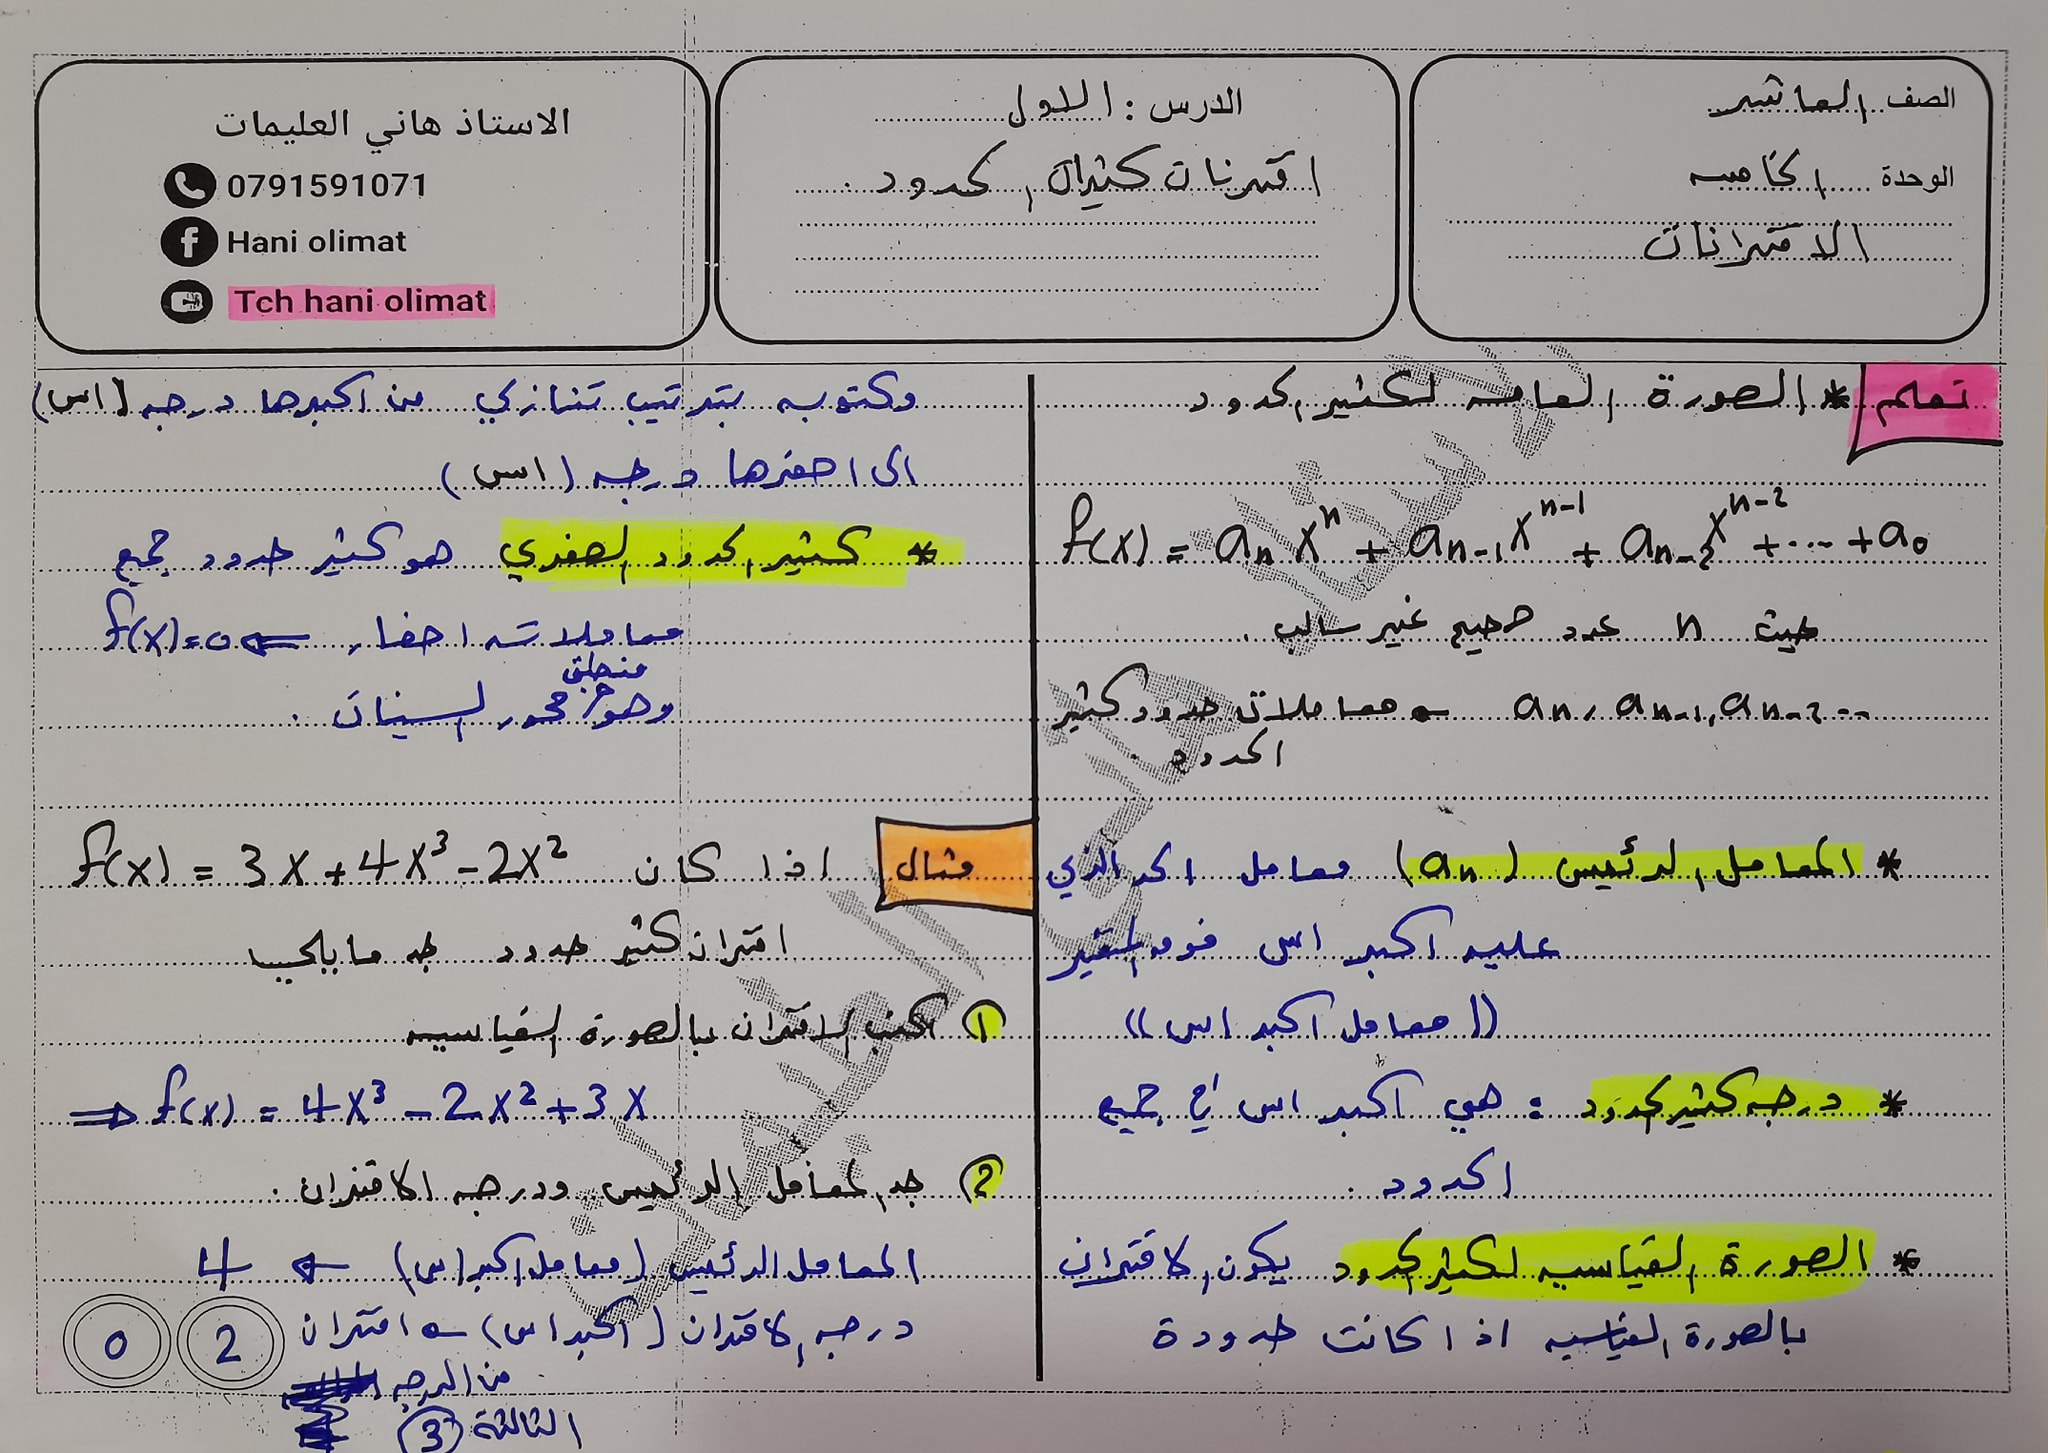 الصف العاشر
الوحدة الخامسه
الاقترانات
الدرس : الاول
اقترنات كثيرات الحدود .
الاستاذ هاني العليمات
0791591071
Hani olimat
Tch hani olimat
تعلم * الصورة العامه لكثير الحدود
f(x) = aₙ xⁿ + aₙ₋₁ xⁿ⁻¹ + aₙ₋₂ xⁿ⁻² + ... + a₀
حيث n عدد صحيح غير سالب .
aₙ , aₙ₋₁ , aₙ₋₂ ... ← معاملات حدود كثير
الحدود .
* المعامل الرئيس (aₙ) معامل الحد الذي
عليه اكبر اس فوق المتغير
(( معامل اكبر اس ))
* درجه كثير الحدود : هي اكبر اس في جميع
الحدود .
* الصورة القياسيه لكثير الحدود يكون الاقتران
بالصورة القياسيه اذا كانت حدودة
مكتوبه بترتيب تنازلي من اكبرها درجه (اس)
الى اصغرها درجه (اس)
* كثير الحدود الصفري هو كثير حدود جميع
معاملاته اصفار ⇐ f(x)=0
منطبق
وهو محور السينات .
مثال اذا كان f(x) = 3x + 4x³ - 2x²
اقتران كثير حدود جد ما يلي
1 اكتب الاقتران بالصورة القياسيه
⇒ f(x) = 4x³ - 2x² + 3x
2 جد المعامل الرئيس ودرجه الاقتران .
المعامل الرئيس (معامل اكبر اس) ← 4
درجه الاقتران (اكبر اس) ← اقتران
من الدرجه
الثالثة 3
2
0